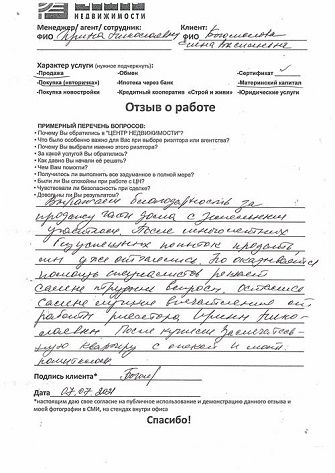 НЕДВИЖИМОСТИ
Менеджер/ агент/ сотрудник: Клиент:
ФИО Ирина Николаевна ФИО
Характер услуги (нужное подчеркнуть):
-Продажа -Обмен -Сертификат ✓
-Покупка «вторичка») -Ипотека через банк -Материнский капитал
-Покупка новостройки -Кредитный кооператив «Строй и живи» -Юридические услуги
Отзыв о работе
ПРИМЕРНЫЙ ПЕРЕЧЕНЬ ВОПРОСОВ:
• Почему Вы обратились в "ЦЕНТР НЕДВИЖИМОСТИ"?
• Что было особенно важно для Вас при выборе риэлтора или агентства?
• Почему Вы выбрали именно этого риэлтора?
• За какой услугой Вы обратились?
• Как давно Вы начали её решать?
• Чем Вам помогли?
• Получилось ли выполнить все задуманное в полной мере?
• Были ли Вы спокойны при работе с ЦН?
• Чувствовали ли безопасность при сделке?
• Довольны ли Вы результатом?
Выражаем благодарность за
продажу части дома с земельным
участком. После многолетних
неуспешных попыток продать,
мы уже отчаялись. Но оказывается
помощь специалистов решает
самые трудные вопросы. Остались
самые лучшие впечатления от
работы риелтора Ирины Нико-
лаевны. После купили замечатель-
ную квартиру с опекой и мат.
капиталом.
Подпись клиента*
Дата 07.07.2021
*настоящим даю свое согласие на публичное использование и демонстрацию данного отзыва и
моей фотографии в СМИ, на стендах внутри офиса
Спасибо!